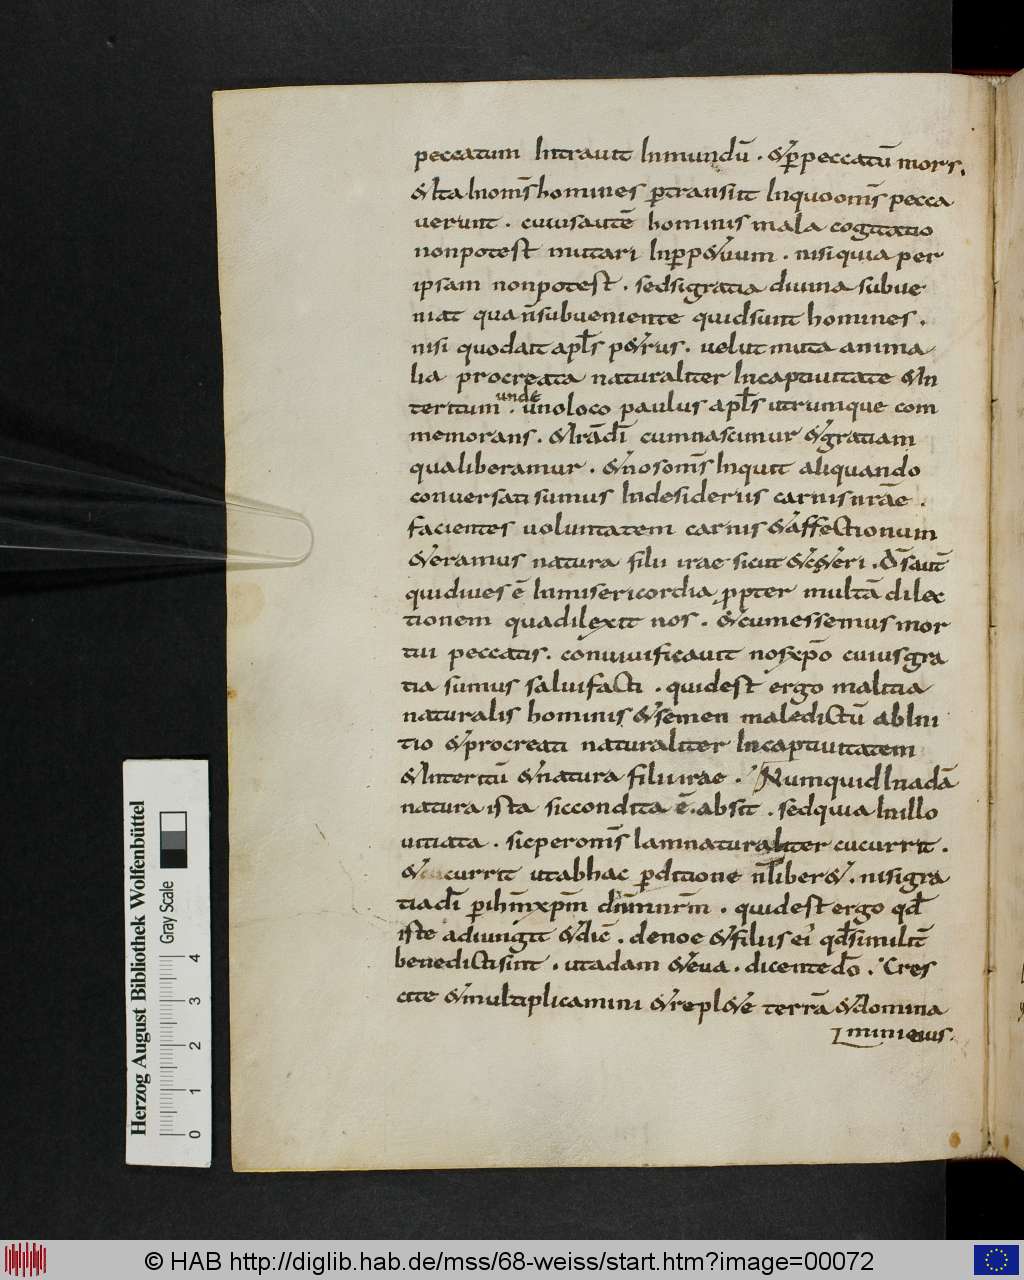 peccatum Intrauit Inmundū . & ꝑpeccatū mors.
& Ita Inom̄s homines ꝑtransiit Inquo om̄s pecca
uerunt . cuius autē hominis mala cogitatio
non potest mutari Inꝑp&uum . nisi quia per
ipsam non potest . sed si gratia diuina subue
niat qua n̄ subueniente quid sunt homines .
nisi quod ait apl̄s p&rus . uelut muta anima
lia procreata naturaliter Incaptiuitate & In
teritum . unde unoloco paulus apl̄s utrumque com
memorans . & Irā dī cum nascimur & gratiam
qua liberamur . & nos om̄s Inquit aliquando
conuersati sumus Indesideriis carnis nrāe .
facientes uoluntatem carnis & affectionum
& eramus natura filii irae sicut & c&eri . ds̄ aut̄
qui diues ē Inmisericordia propter multā dilec
tionem qua dilexit nos . & cum essemus mor
tui peccatis . conuiuificauit nos xp̄o cuius gra
tia sumus salui facti . quid est ergo malitia
naturalis hominis & semen maledictū ab Ini
tio & procreati naturaliter Incaptiuitatem
& Interitū & natura filii irae . Numquid Inadā
natura ista sic condita ē . absit . sed quia Inillo
uitiata . sic per om̄s Iam naturaliter cucurrit .
& currit ut ab hac ꝑditione n̄ liber& . nisi gra
tia dī ꝑ ihm̄ xpm̄ dn̄m nrm̄ . quid est ergo qđ
iste adiungit & dic̄ . de noe & filiis ei' qđ similit̄
benedicti sint . ut adam & eua . dicente dō . Cres
cite & multiplicamini & repl&e terrā & domina
mini eius .
Herzog August Bibliothek Wolfenbüttel
Gray Scale
0 1 2 3 4
© HAB http://diglib.hab.de/mss/68-weiss/start.htm?image=00072